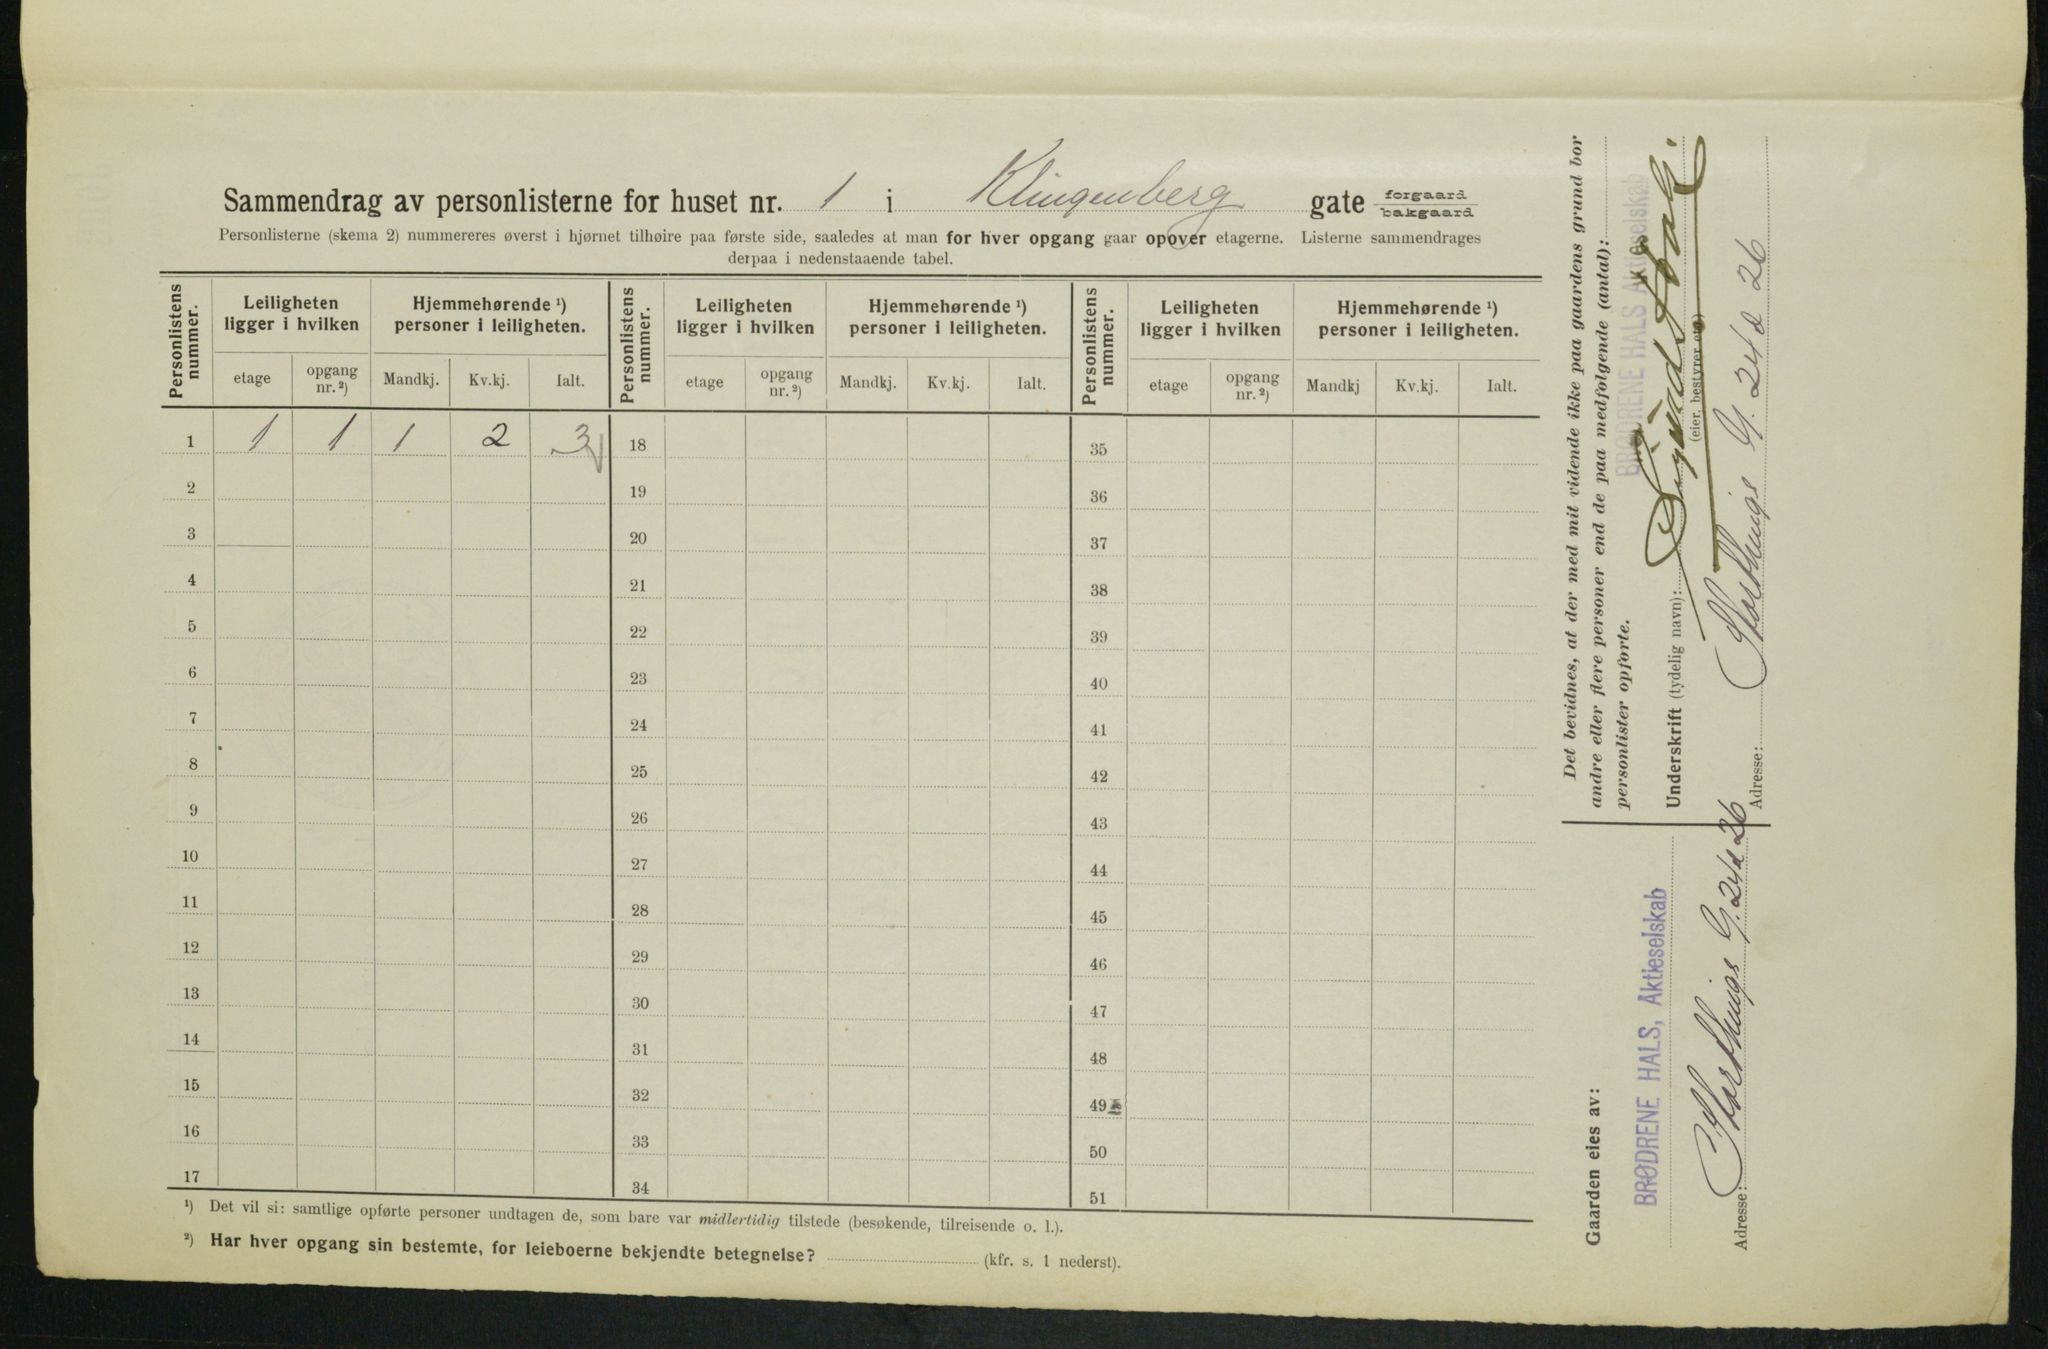 Sammendrag av personlisterne for huset nr. 1 i Klingenberg gate forgaard bakgaard
Personlisterne (skema 2) nummereres øverst i hjørnet tilhøire paa første side, saaledes at man for hver opgang gaar opover etagerne. Listerne sammendrages
derpaa i nedenstaaende tabel.
Personlistens nummer. Leiligheten ligger i hvilken Hjemmehørende ¹) personer i leiligheten. Personlistens nummer. Leiligheten ligger i hvilken Hjemmehørende ¹) personer i leiligheten. Personlistens nummer. Leiligheten ligger i hvilken Hjemmehørende ¹) personer i leiligheten.
etage opgang nr. ²) Mandkj. Kv.kj. Ialt. etage opgang nr. ²) Mandkj. Kv.kj. Ialt. etage opgang nr. ²) Mandkj Kv.kj. Ialt.
1 1 1 1 2 3 18 35
2 19 36
3 20 37
4 21 38
5 22 39
6 23 40
7 24 41
8 25 42
9 26 43
10 27 44
11 28 45
12 29 46
13 30 47
14 31 48
15 32 49
16 33 50
17 34 51
¹) Det vil si: samtlige opførte personer undtagen de, som bare var midlertidig tilstede (besøkende, tilreisende o. l.).
²) Har hver opgang sin bestemte, for leieboerne bekjendte betegnelse? (kfr. s. 1 nederst).
Det bevidnes, at der med mit vidende ikke paa gaardens grund bor
andre eller flere personer end de paa medfølgende (antal):
personlister opførte.
BRØDRENE HALS Aktieselskab
Underskrift (tydelig navn):
(eier, bestyrer etc.)
Adresse: Storthings G. 24 & 26
Gaarden eies av:
BRØDRENE HALS, Aktieselskab
Adresse: Storthings G. 24 & 26